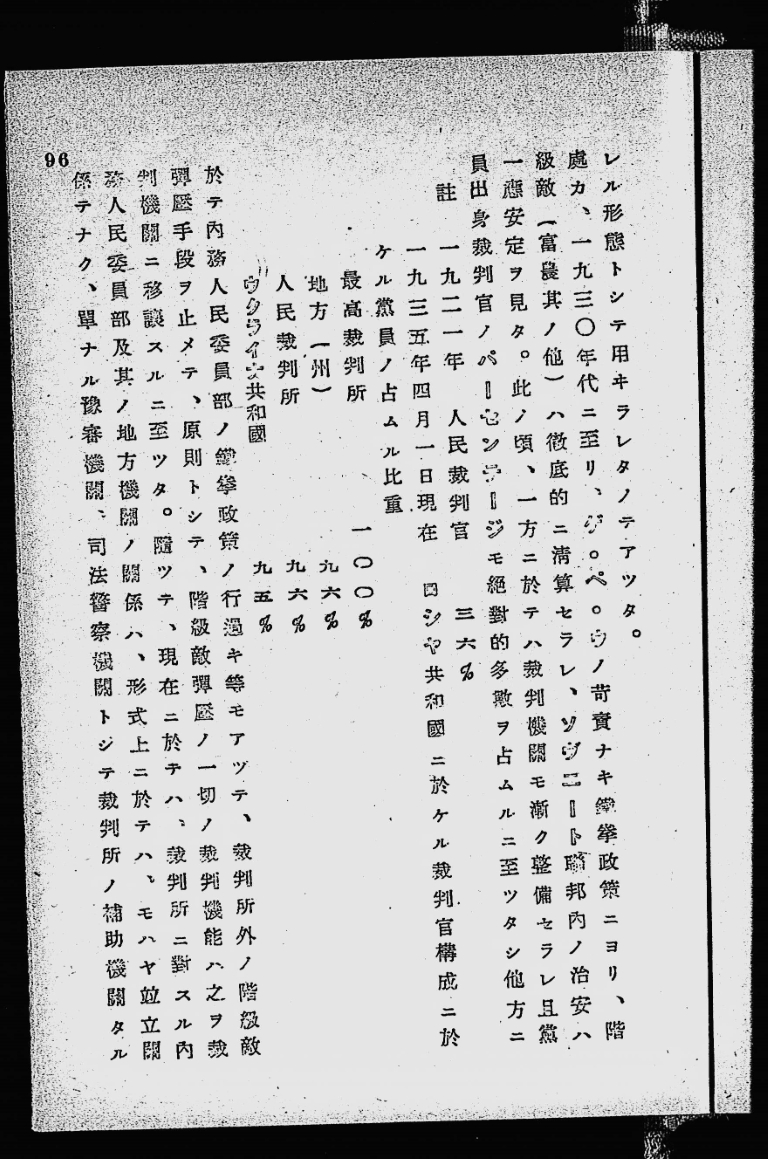 レル形態トシテ用ヰラレタノテアツタ。
處カ、一九三〇年代ニ至リ、ゲ。ペ。ウノ苛責ナキ鐵拳政策ニヨリ、階
級敵（富農其ノ他）ハ徹底的ニ淸算セラレ、ソヴエート聯邦內ノ治安ハ
一應安定ヲ見タ。此ノ頃、一方ニ於テハ裁判機關モ漸ク整備セラレ且黨
員出身裁判官ノパーセンテージモ絕對的多數ヲ占ムルニ至ツタシ他方ニ
註　一九二一年　人民裁判官　三六％
一九三五年四月一日現在　ロシヤ共和國ニ於ケル裁判官構成ニ於
ケル黨員ノ占ムル比重
最高裁判所　一〇〇％
地方（州）　九六％
人民裁判所　九六％
ウクライナ共和國　九五％
於テ內務人民委員部ノ鐵拳政策ノ行過キ等モアツテ、裁判所外ノ階級敵
彈壓手段ヲ止メテ、原則トシテ、階級敵彈壓ノ一切ノ裁判機能ハ之ヲ裁
判機關ニ移讓スルニ至ツタ。隨ツテ、現在ニ於テハ、裁判所ニ對スル內
務人民委員部及其ノ地方機關ノ關係ハ、形式上ニ於テハ、モハヤ竝立關
係テナク、單ナル豫審機關、司法警察機關トシテ裁判所ノ補助機關タル
96